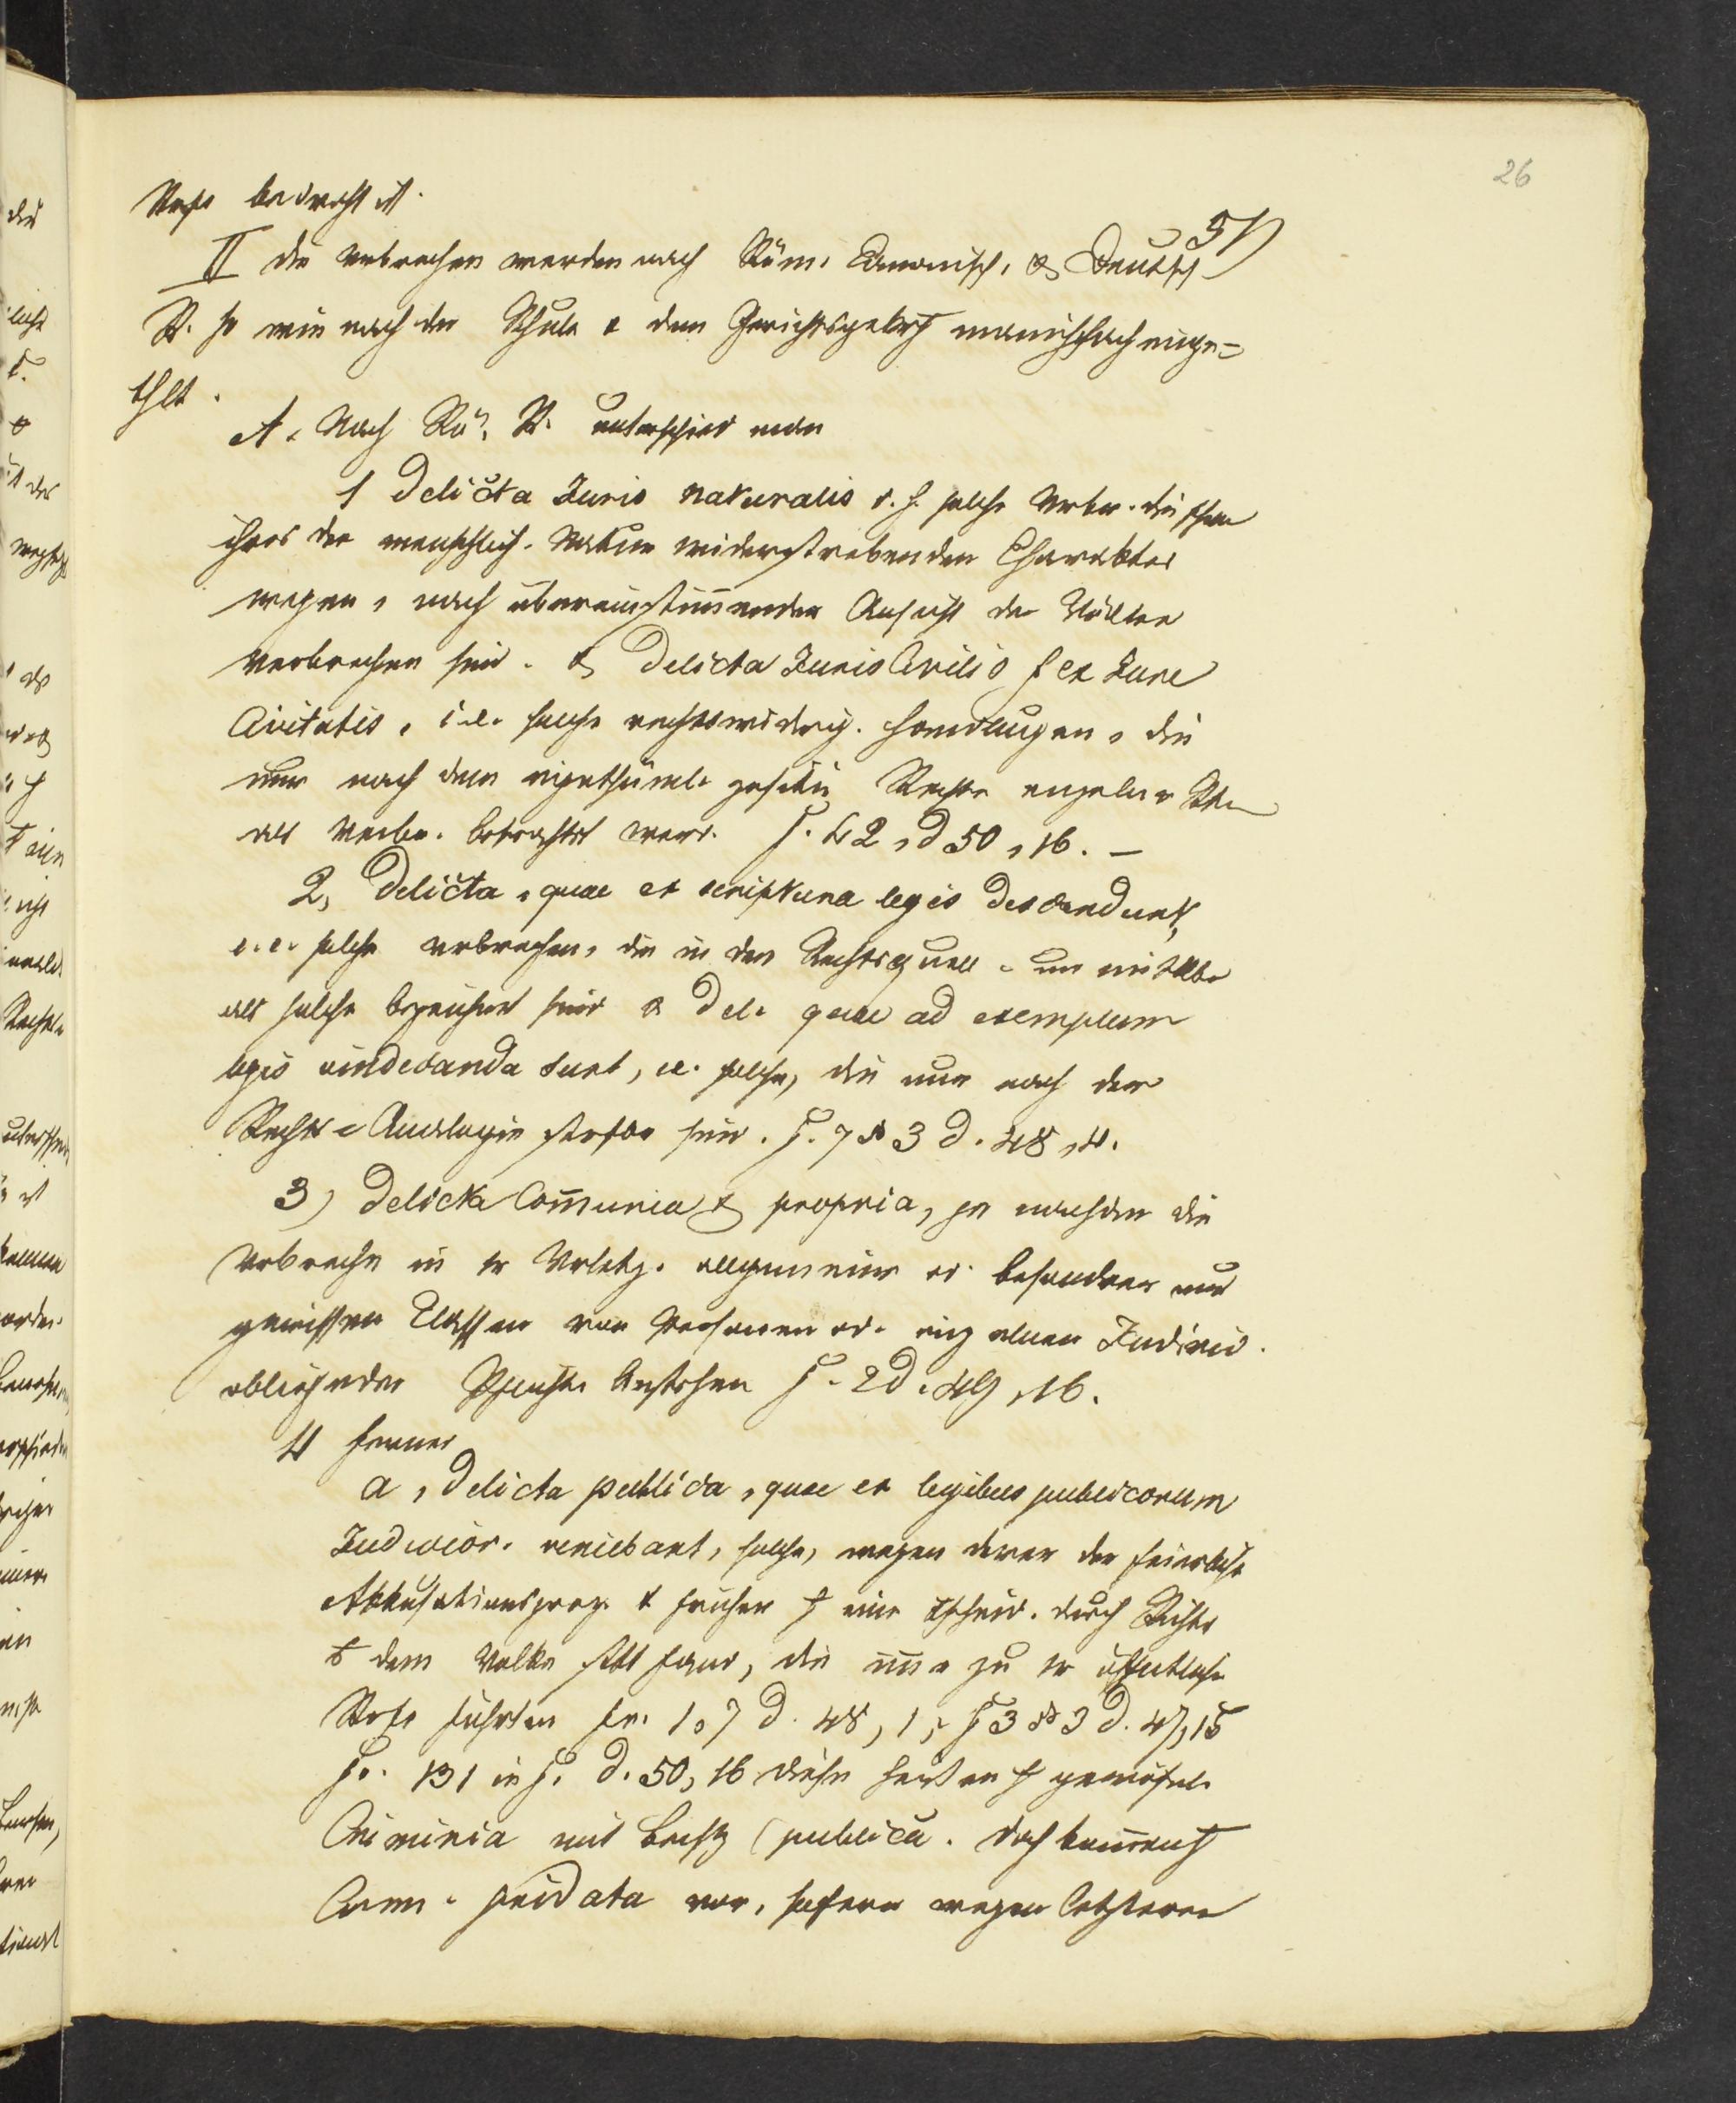 26
51)
Strafe bedroht ist.
II die Verbrechen werden nach Röm. Canonisch. & Deutsch
R. so wie nach der Schule & dem Gerichtsgebrch mannichfach einge=
thlt.
A. Nach Rö. R. unterschied man
1 Delicta Juris naturalis d. h. solche Verbr. die schon
ihres der menschlich. Natur widerstrebenden Charakters
wegen, nach übereinstimmender Ansicht der Völker
Verbrechen sind. & Delicta Juris Civilis s ex Jure
Civitatis, i.e. solche rechtswidrig. Handlungen, die
nur nach dem eigethüml. Rechte einzelner
als Verbr. betrachtet werd. f. 42, d 50, 16. —
2, Delicta, quae ex scriptura legis descendunt,
i.e. solche Verbrechen, die in den Rechtsquell. unmittelbr
als solche bezeichnet sind & Del. quae ad exemplum
legis vindicanda sunt, i.e. solche, die nur nach der
Rechts=Analogie strafbr sind. f. 7 § 3 d. 48, 4.
3) Delicta Communia & propria, je nachdem die
Verbrechn in er Verletzg. allgemeiner od. besondrer nur
gewissen Classen von Personen od. einzelnen Individ.
obliegender Pflicht. bestehen f. 2 d. 49, 16.
4 ferner
a, Delicta publica, quae ex legibus publicorum
Judicior. veniebant, solche, wegen derer der feierliche
Akkusationsproz. & früher eine Etscheid. durch Richter
dem Volke statt fand, die immer zu er öffentlich
Strafe führten fr. 1, 7 d. 48, 1, f 3 § 3 d. 47, 15
fr. 131 in f. d. 50, 16 diese heißen gewöhnl.
Crimina mit Beisatz (publica. doch kommen
Crim. privata vor, sofern wegen letzteren